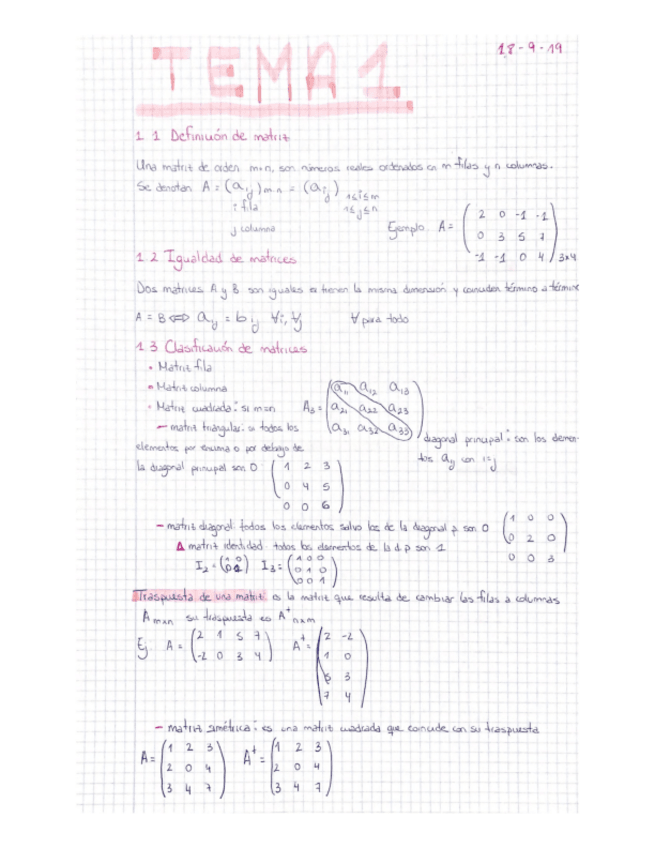 18-9-19
TEMA 1
1.1 Definición de matriz
Una matriz de orden m×n, son números reales ordenados en m filas y n columnas.
Se denotan A = (aij)m×n = (aij) 1≤i≤m
i fila 1≤j≤n
j columna
Ejemplo A = ( 2 0 -1 -1
0 3 5 7
-1 -1 0 4 ) 3x4
1.2 Igualdad de matrices
Dos matrices A y B son iguales si tienen la misma dimensión y coinciden término a término
A = B ⟺ aij = bij ∀i, ∀j ∀ para todo
1.3 Clasificación de matrices
• Matriz fila
• Matriz columna
• Matriz cuadrada: si m=n A3 = ( a11 a12 a13
a21 a22 a23
a31 a32 a33 )
— matriz triangular: si todos los
elementos por encima o por debajo de
la diagonal principal son 0 ( 1 2 3
0 4 5
0 0 6 )
diagonal principal: son los elemen-
tos aij con i=j
— matriz diagonal: todos los elementos salvo los de la diagonal p. son 0 ( 1 0 0
0 2 0
0 0 3 )
Δ matriz identidad todos los elementos de la d.p son 1
I2 = ( 1 0
0 1 ) I3 = ( 1 0 0
0 1 0
0 0 1 )
Traspuesta de una matriz es la matriz que resulta de cambiar las filas a columnas
Am×n su traspuesta es A^t n×m
Ej. A = ( 2 1 5 7
-2 0 3 4 ) A^t = ( 2 -2
1 0
5 3
7 4 )
— matriz simétrica: es una matriz cuadrada que coincide con su traspuesta
A = ( 1 2 3
2 0 4
3 4 7 ) A^t = ( 1 2 3
2 0 4
3 4 7 )